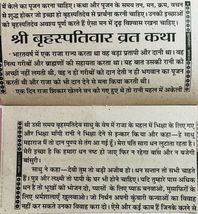 में केले का पूजन करना चाहिए। कथा और पूजन के समय तन, मन, क्रम, वचन
से शुद्ध होकर जो इच्छा हो बृहस्पतिदेव से प्रार्थना करनी चाहिए। उनकी इच्छाओं
को बृहस्पतिदेव अवश्य पूर्ण करते हैं ऐसा मन में दृढ़ विश्वास रखना चाहिए।
श्री बृहस्पतिवार व्रत कथा
भारतवर्ष में एक राजा राज्य करता था वह बड़ा प्रतापी और दानी था। वह
नित्य गरीबों और ब्राह्मणों की सहायता करता था। यह बात उसकी रानी को
अच्छी नहीं लगती थी, वह न ही गरीबों को दान देती न ही भगवान का पूजन
करती थी और राजा को भी दान देने से मना किया करती थी।
एक दिन राजा शिकार खेलने वन को गए हुए थे, तो रानी महल में अकेली थी।
उसी समय बृहस्पतिदेव साधु के वेष में राजा के महल में भिक्षा के लिए गए
और भिक्षा माँगी रानी ने भिक्षा देने से इन्कार किया और कहा- हे साधु
महाराज मैं तो दान पुण्य से तंग आ गई हूं। मेरा पति सारा धन लुटाता रहता है।
मेरी इच्छा है कि हमारा धन नष्ट हो जाए फिर न रहेगा बांस न बजेगी
बांसुरी।
साधु ने कहा- देवी तुम तो बड़ी अजीब हो। धन सन्तान तो सभी चाहते
हैं। पुत्र और लक्ष्मी तो पापी के घर भी होने चाहिए। यदि तुम्हारे पास अधिक
धन है तो भूखों को भोजन दो, प्यासों के लिए प्याऊ बनवाओ, मुसाफिरों के
लिए धर्मशालाएं खुलवाओ। जो निर्धन अपनी कुंवारी कन्याओं का विवाह
नहीं कर सकते उनका विवाह करा दो। ऐसे और कई काम हैं जिनके करने से